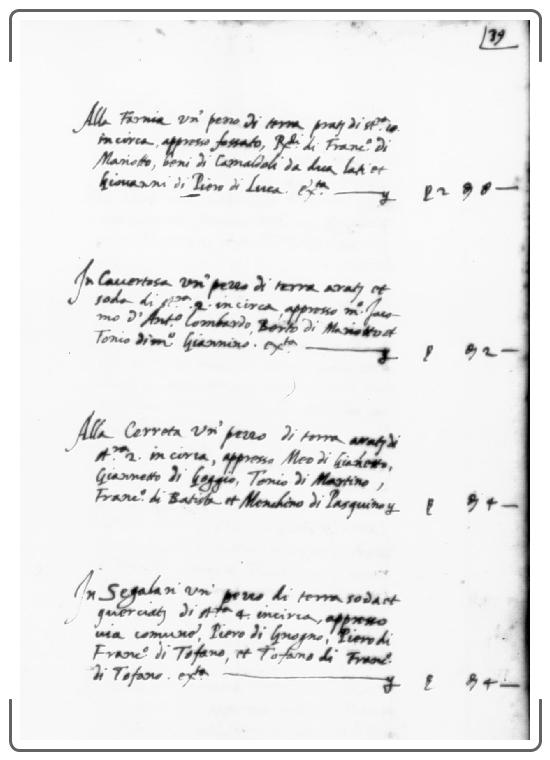 39
Alla Farnia un' pezzo di terra prat. di st.ra 10.
incirca, appresso fossato, Rédi di Franc.o di
Mariotto, beni di Camaldoli da dua lati et
Giovanni di Piero di Luca. ex.ta 2 8
In Caccortosa un' pezzo di terra arat. et
soda di st.ra 2. incirca, appresso m.o Jaco-
mo d'Ant.o Lombardo, Berto di Mariotto et
Tonio di m.o Giannino. ex.ta 2
Alla Cerreta un' pezzo di terra arat. di
st.ra 2. incirca, appresso Meo di Gianetto,
Giannetto di Goggio, Tonio di Martino,
Franc.o di Batista et Menchino di Pasquino 4
In Segalari un' pezzo di terra soda et
querciat. di st.ra 4. incirca, appresso
via comune, Piero di Gnogno, Piero di
Franc.o di Tofano, et Tofano di Franc.o
di Tofano. ex.ta 4